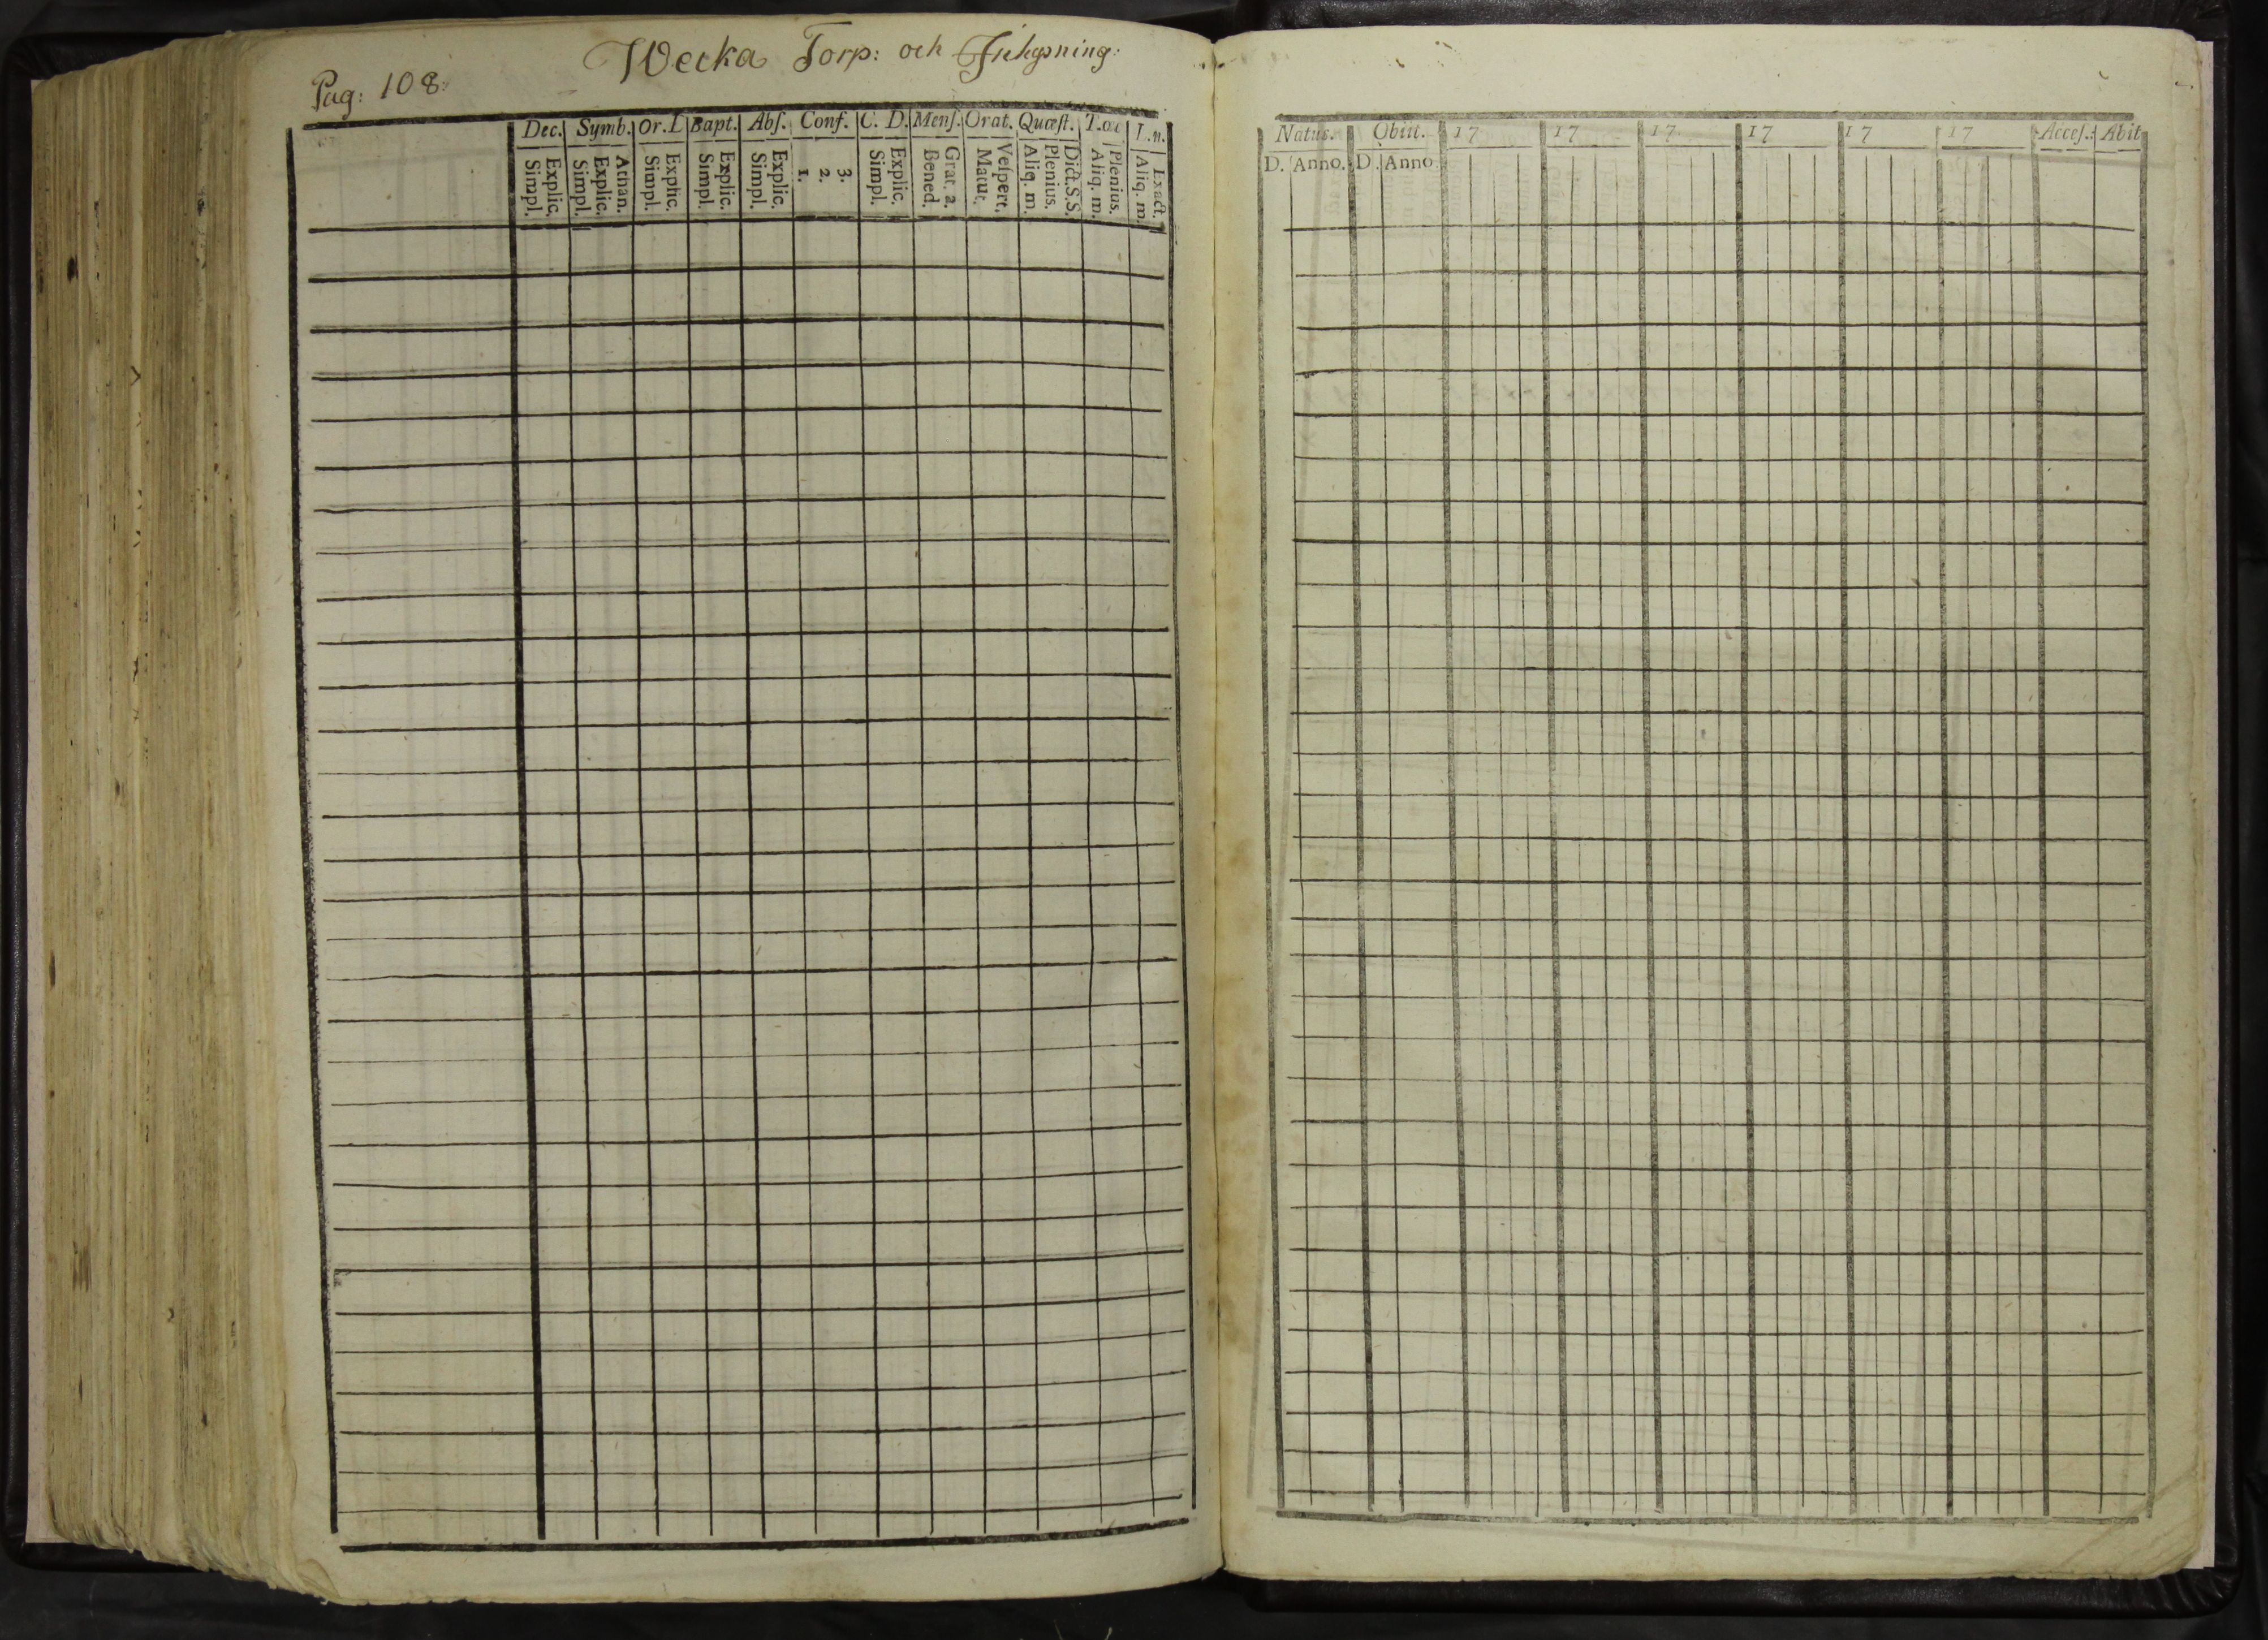 Wecka Torp: och
Pag: 108:
Dec. Symb. Or. D Bapt. Abſ. Conf. C. D. Menſ. Orat. Quæſt. T. œc I. n.
Simpl. Explic. Simpl. Explic. Athan. Simpl. Explic. Simpl. Explic. Simpl. Explic. 1. 2. 3. Simpl. Explic. Bened. Grat. a. Matut. Veſpert. Aliq. m. Plenius. Dict. S. S. Aliq. m. Plenius. Aliq. m. Exact.
Natus. Obiit. 17 17 17 17 17 17 Acceſ. Abit
D. Anno. D. Anno